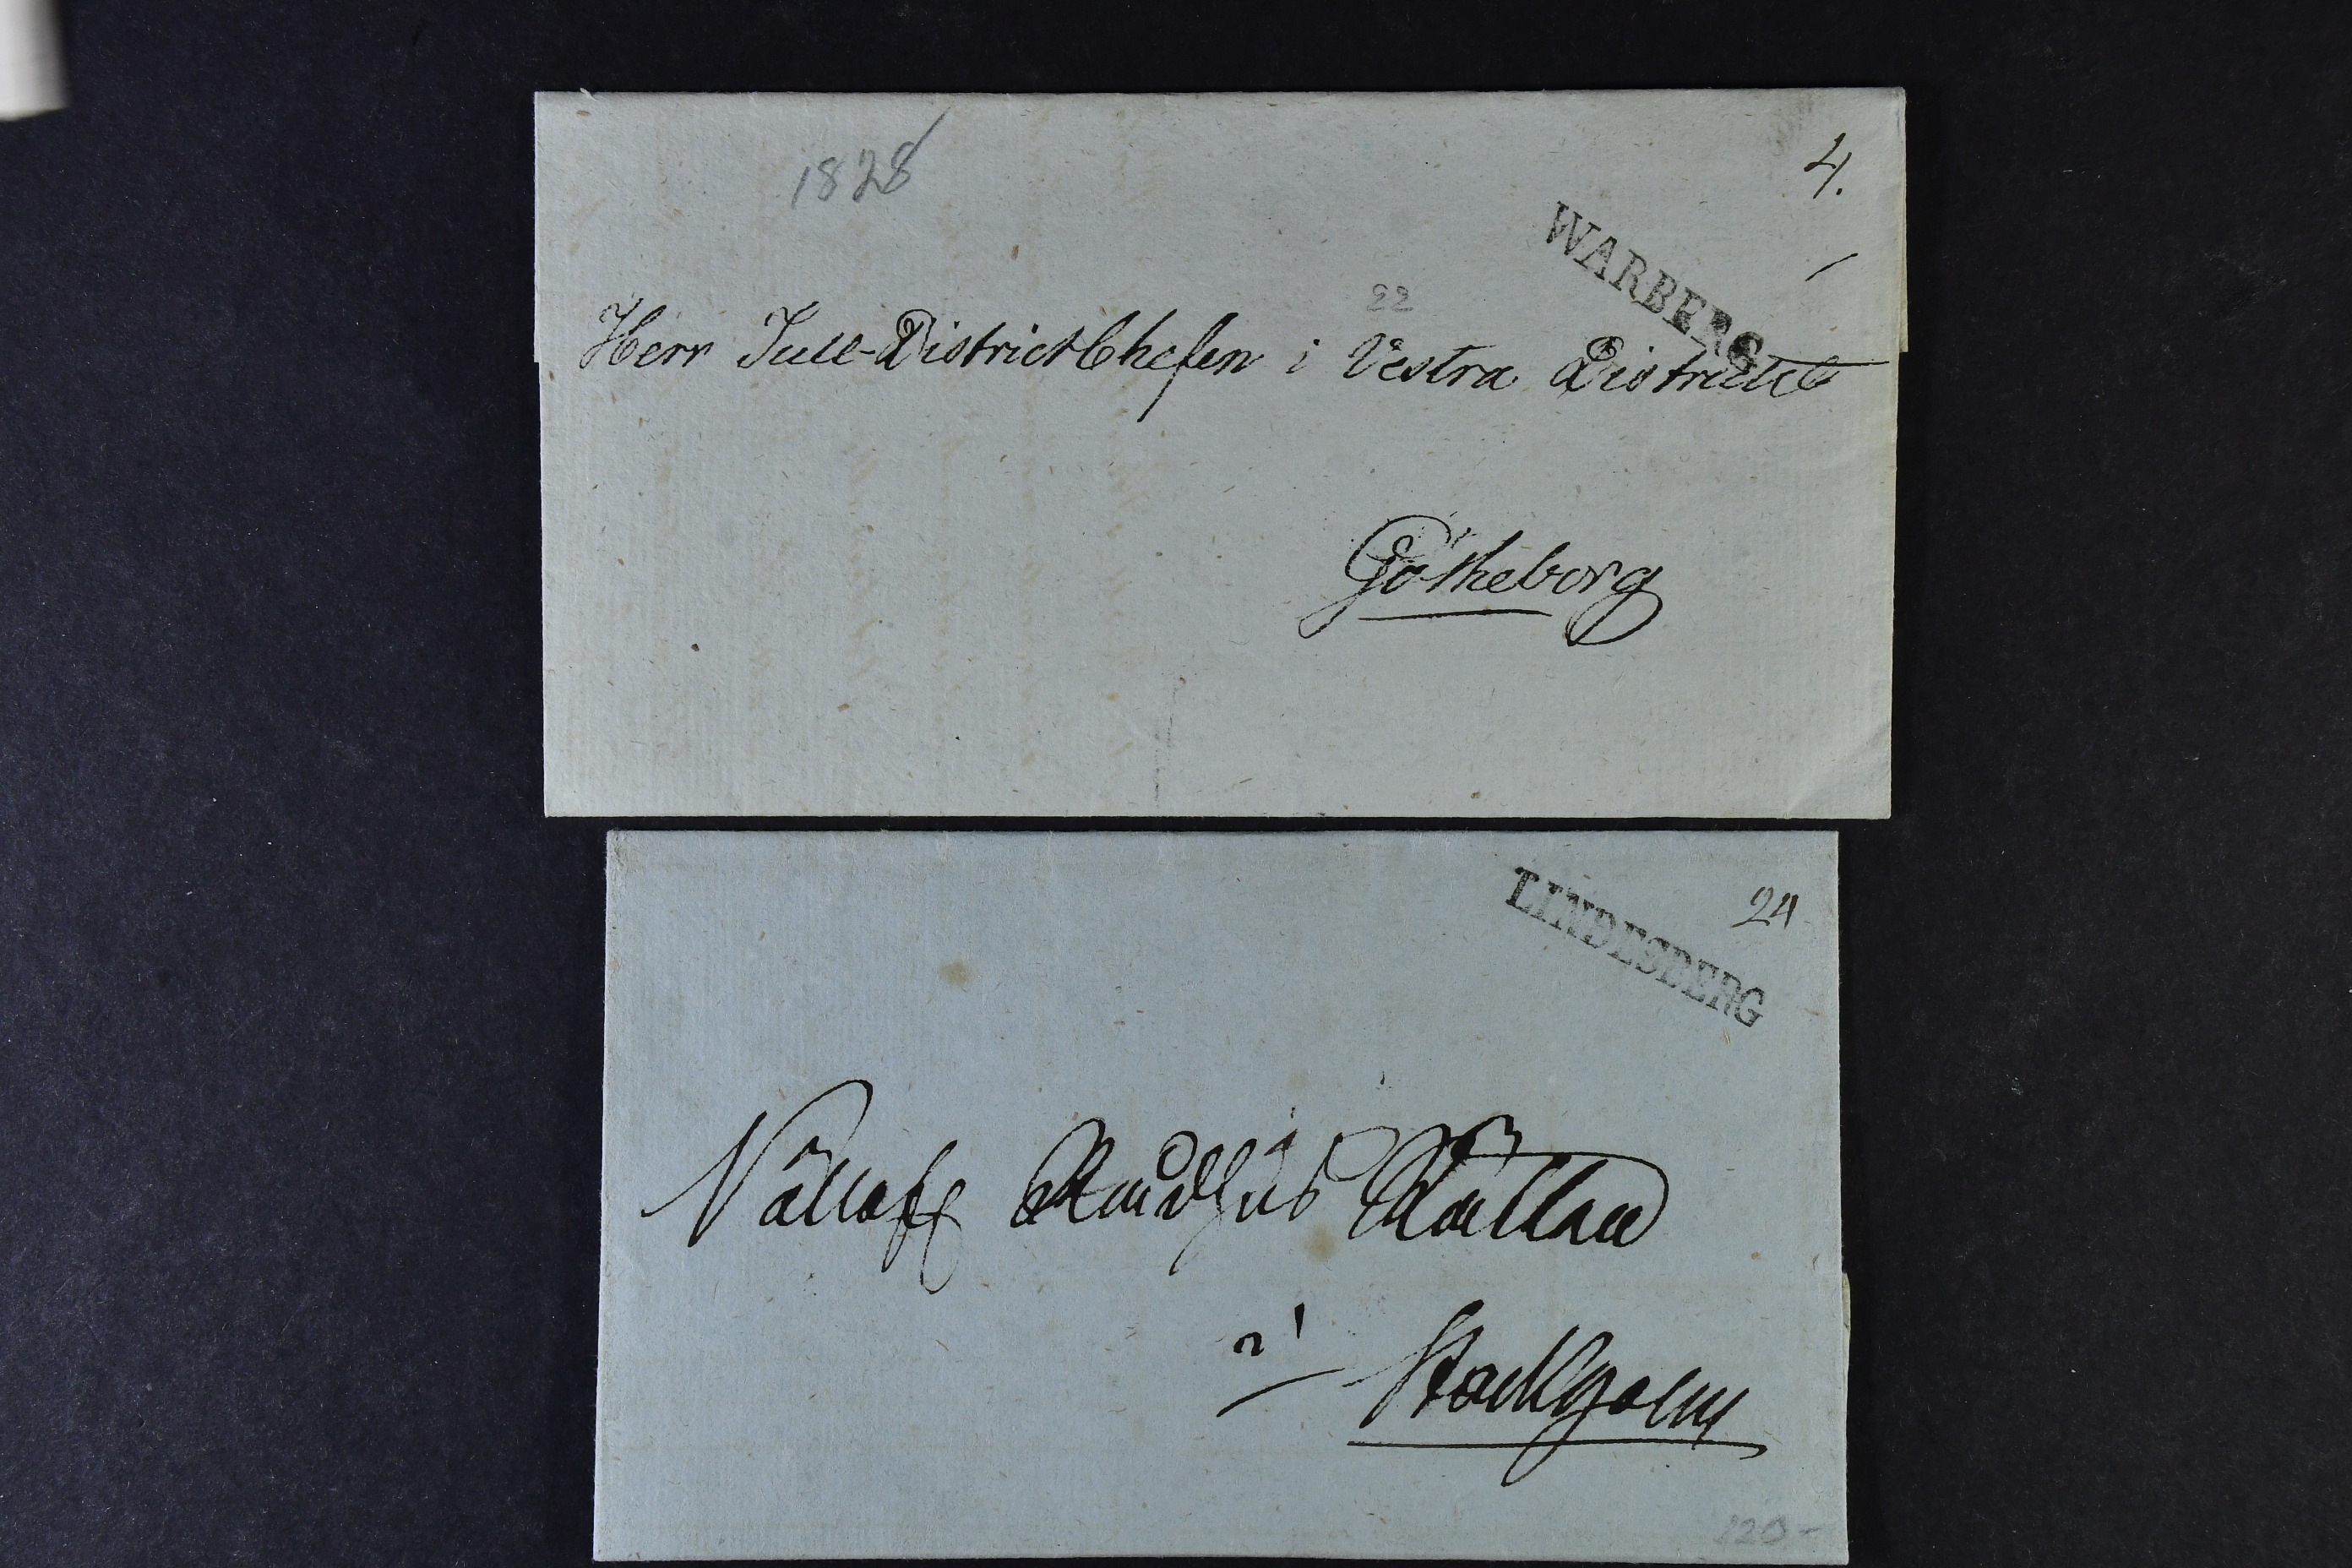 1828
4.
WARBERG
22
Herr Tull-Districtschefen i Vestra Districtet
Götheborg
24
LINDESBERG
Rådhus Rätten
i Stockholm
120-